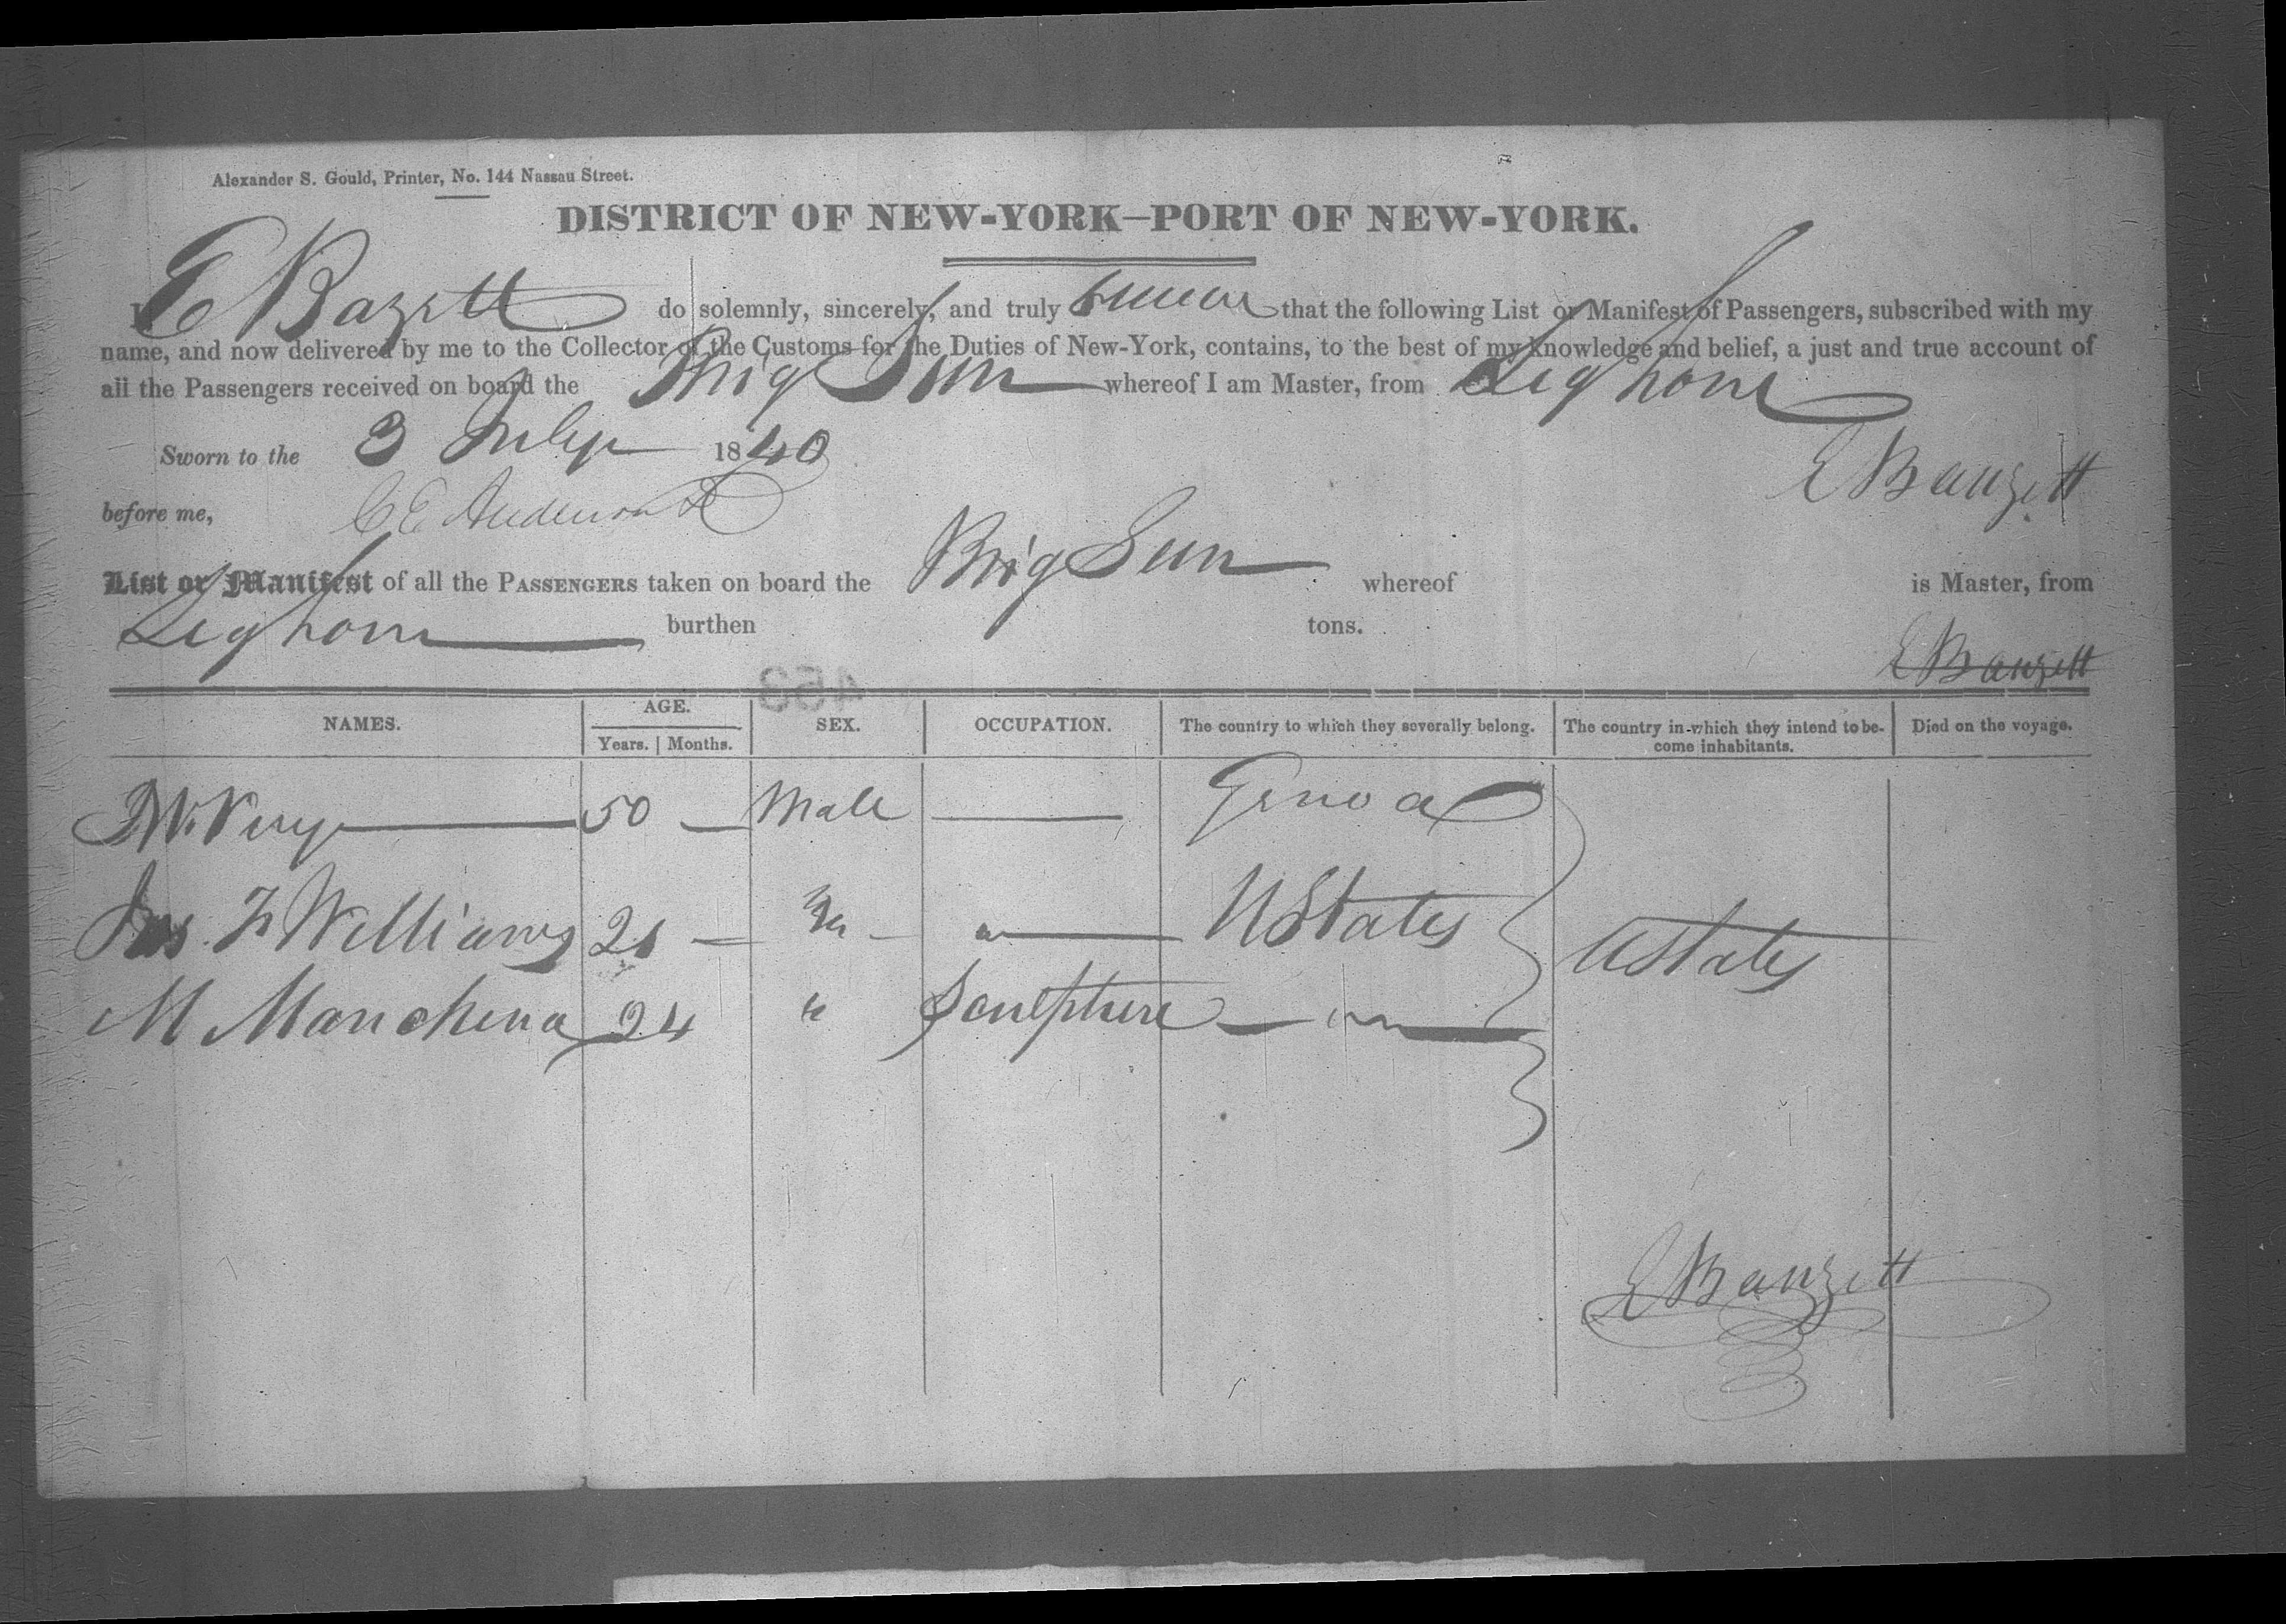 Alexander S. Gould, Printer, No. 144 Nassau Street.
DISTRICT OF NEW-YORK—PORT OF NEW-YORK.
I E Bazett do solemnly, sincerely, and truly swear that the following List or Manifest of Passengers, subscribed with my
name, and now delivered by me to the Collector of the Customs for the Duties of New-York, contains, to the best of my knowledge and belief, a just and true account of
all the Passengers received on board the Brig Sun whereof I am Master, from Leghorn
Sworn to the 3 July 1840
E Banzett
before me, C E Anderson
List or Manifest of all the PASSENGERS taken on board the Brig Sun whereof is Master, from
Leghorn burthen tons.
E Banzett
453
NAMES. AGE. Years. | Months. SEX. OCCUPATION. The country to which they severally belong. The country in which they intend to become inhabitants. Died on the voyage.
50 — Male — Genoa
Jas. F Williams 21 — M — " — U States U States
M Manchena 24 " Sculpture — " —
E Banzett